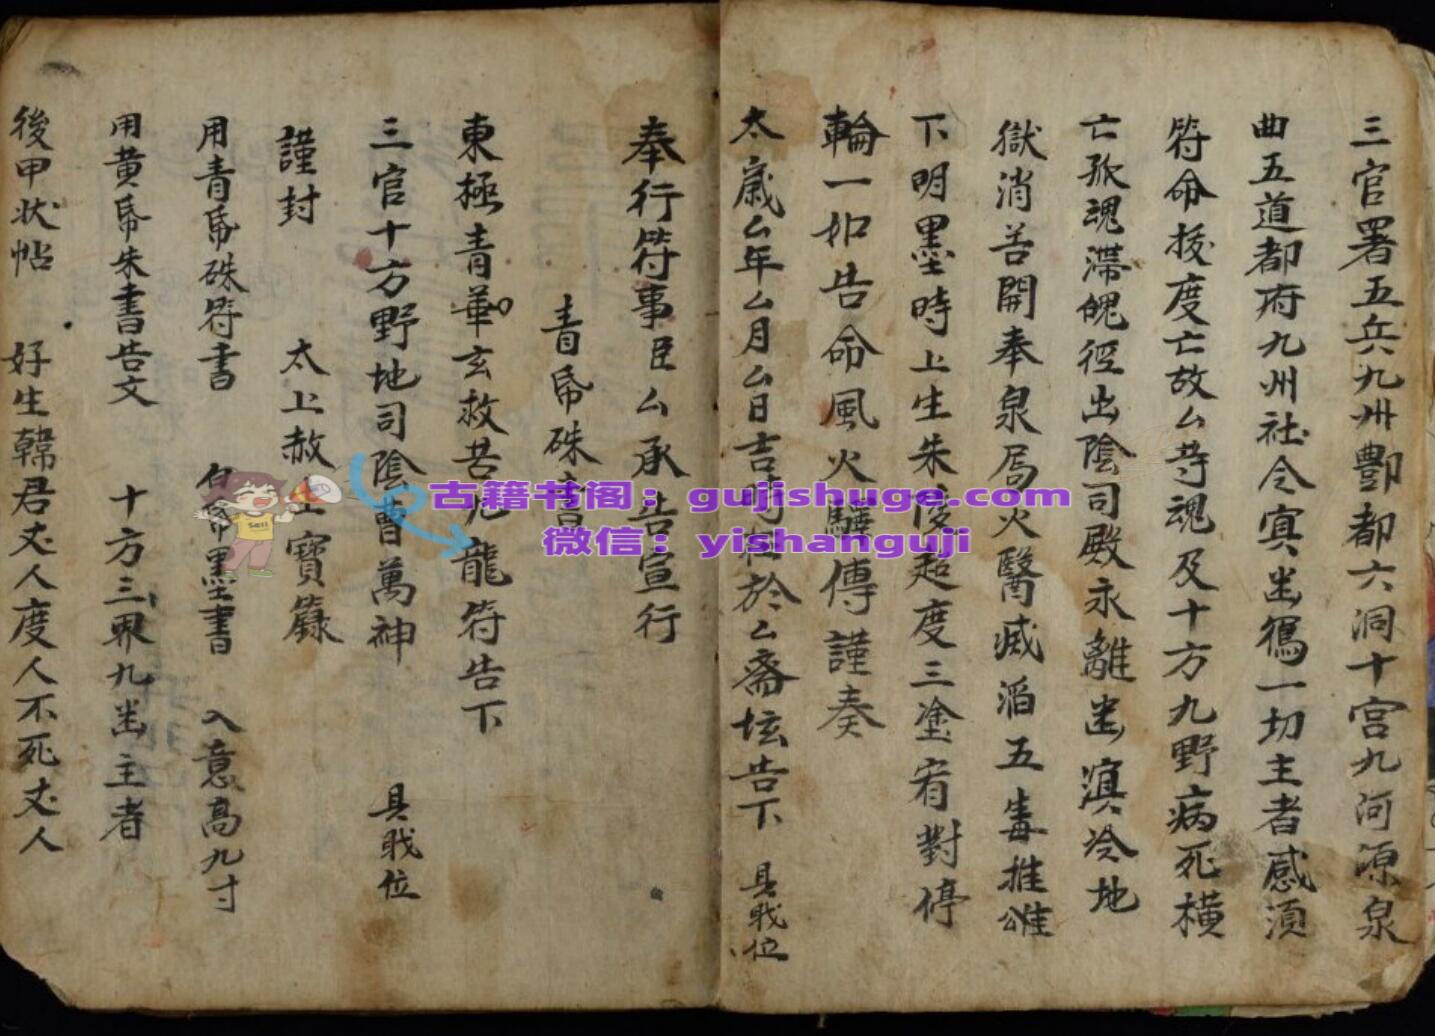 三官署五兵九州酆都六洞十宮九河源泉
曲五道都府九州社令冥幽獄一切主者咸須
符命拔度亡故厶等魂及十方九野病死橫
亡孤魂滯魄徑出陰司殿永離幽冥冷地
獄消苦開奉泉局火醫滅滔五毒推
下明墨時上生朱陵超度三塗宥對停
輪一如告命風火驛傳謹奏
太歲厶年厶月厶日吉時於厶齋坛告下 具戝位
奉行符事臣厶承告宣行
青帋硃書
東極青華玄救苦九龍符告下
三官十方野地司陰曹萬神 具戝位
謹封 太上赦寶籙
用青帋硃符書 白帋墨書 入意高九寸
用黄帋朱書告文 十方三界九幽主者
後甲状帖 好生韓君丈人度人不死丈人
古籍书阁：gujishuge.com
微信：yishanguji